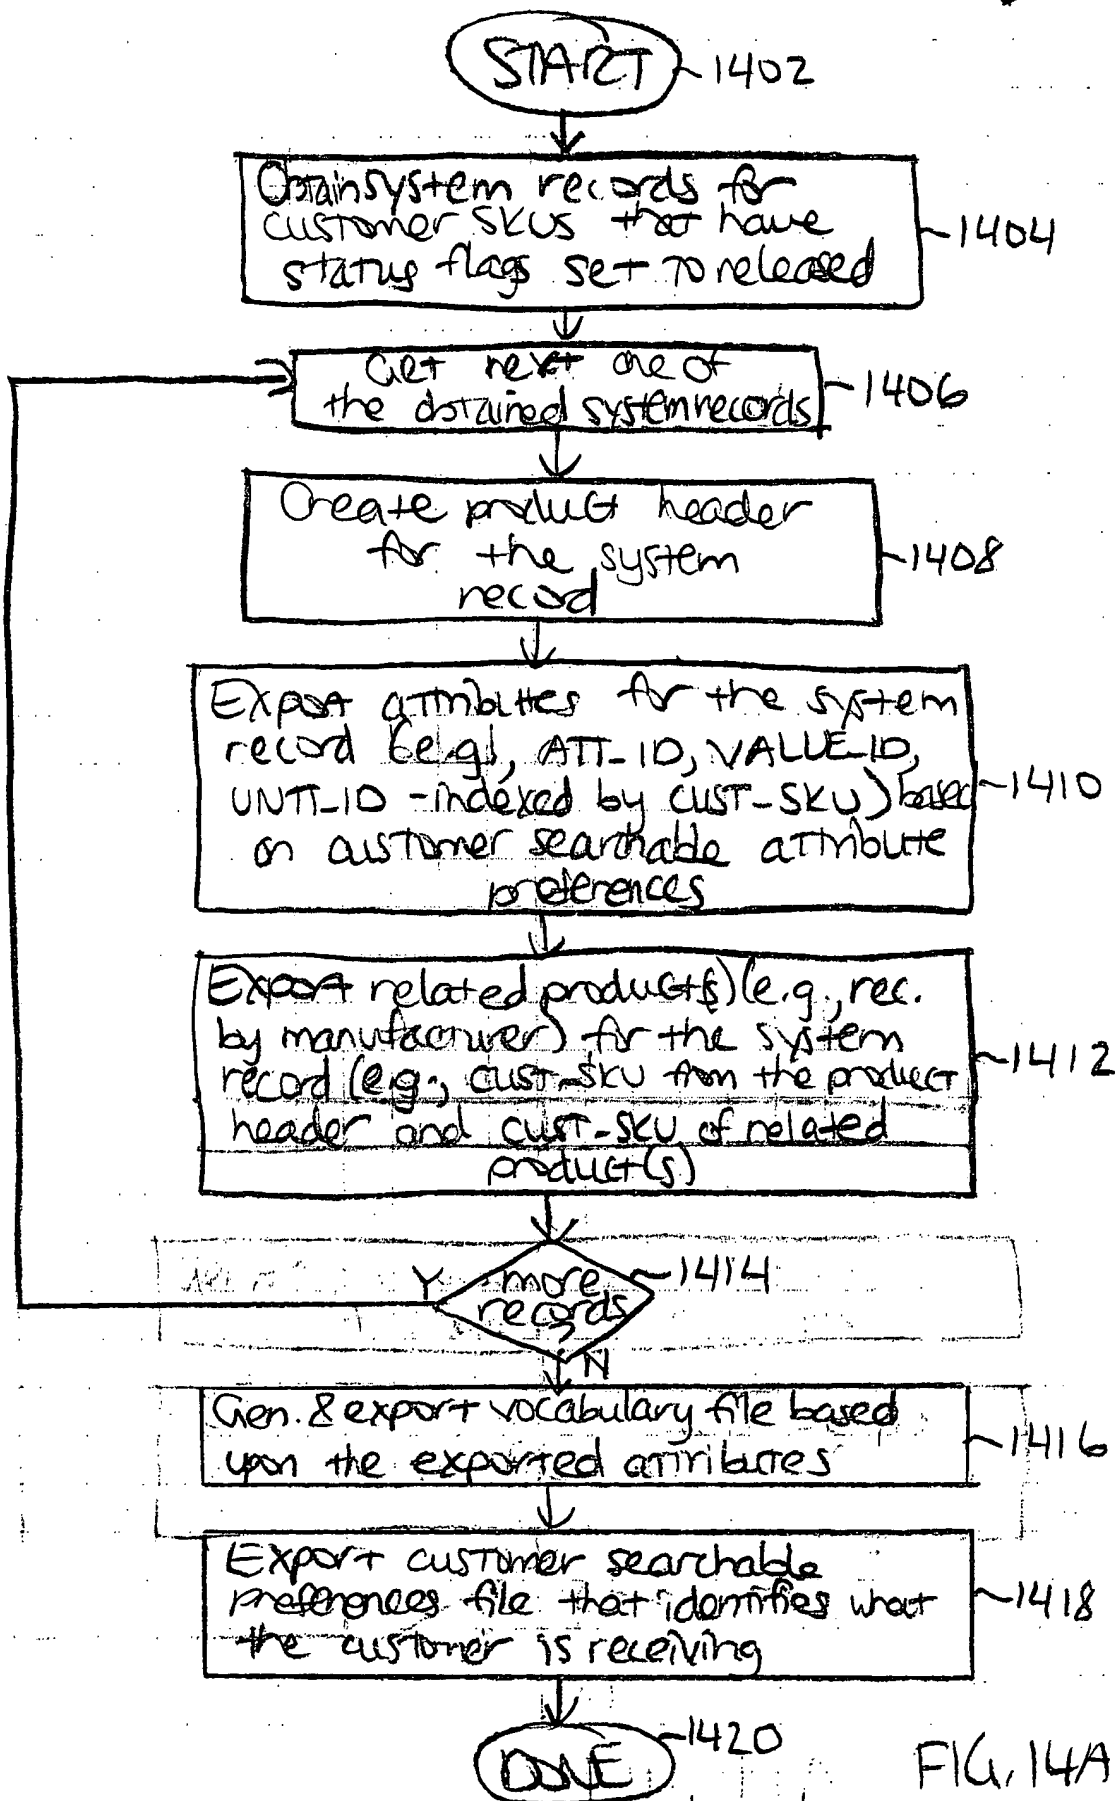 START
1402
Obtain system records for
customer SKUs that have
status flags set to released
1404
Get next one of
the obtained system records
1406
Create product header
for the system
record
1408
Export attributes for the system
record (e.g., ATT_ID, VALUE_ID,
UNIT_ID - indexed by CUST-SKU) based
on customer searchable attribute
preferences
1410
Export related product(s) (e.g., rec.
by manufacturer) for the system
record (e.g., CUST-SKU from the product
header and CUST-SKU of related
product(s)
1412
Y
more
records
?
1414
N
Gen. & export vocabulary file based
upon the exported attributes
1416
Export customer searchable
preferences file that identifies what
the customer is receiving
1418
DONE
1420
FIG. 14A